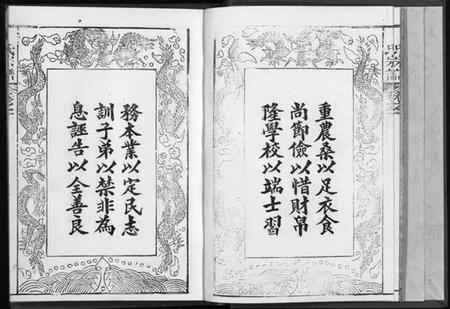 重農桑以足衣食
尚節儉以惜財帛
隆學校以端士習
務本業以定民志
訓子弟以禁非為
息誣告以全善良